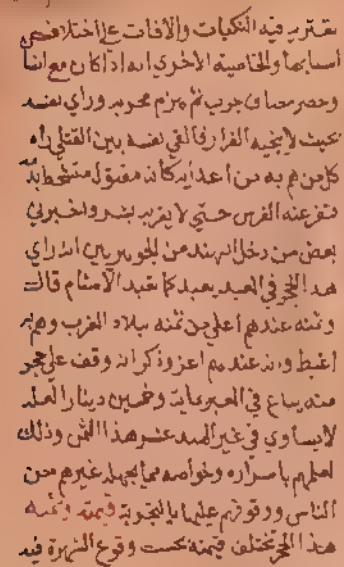 تعتريه فيه النكبات والآفات على اختلاف
اسبابها والخاصية الاخرى انه اذا كان مع انسا
وحضر مصاف حرب ثم هزم حزبه وراى نفسه
بحيث لا ينجيه الفرار فالقى نفسه بين القتلى راه
كل من هم به من اعدايه كانه مقتول متشحط بدمه
فتفر عنه الفرس حتى لا يقربه بشر واخبرني
بعض من دخل الهند من الجوهريين انه راى
هذا الحجر في الهند يعبد كما تعبد الاصنام قال
وثمنه عندهم اعلى من ثمنه ببلاد الغرب وهم به
اغبط وانه عندهم اعز وذكر انه وقف على حجر
منه يباع في المعبر بماية وخمسين دينارا لعله
لا يساوي في غير الهند عشر هذا الثمن وذلك
لعلمهم باسراره وخواصه مما يجهله غيرهم من
الناس ووقوفهم عليها بالتجربة قيمته وثمنه
هذا الحجر تختلف قيمته بحسب وقوع الشهرة فيه